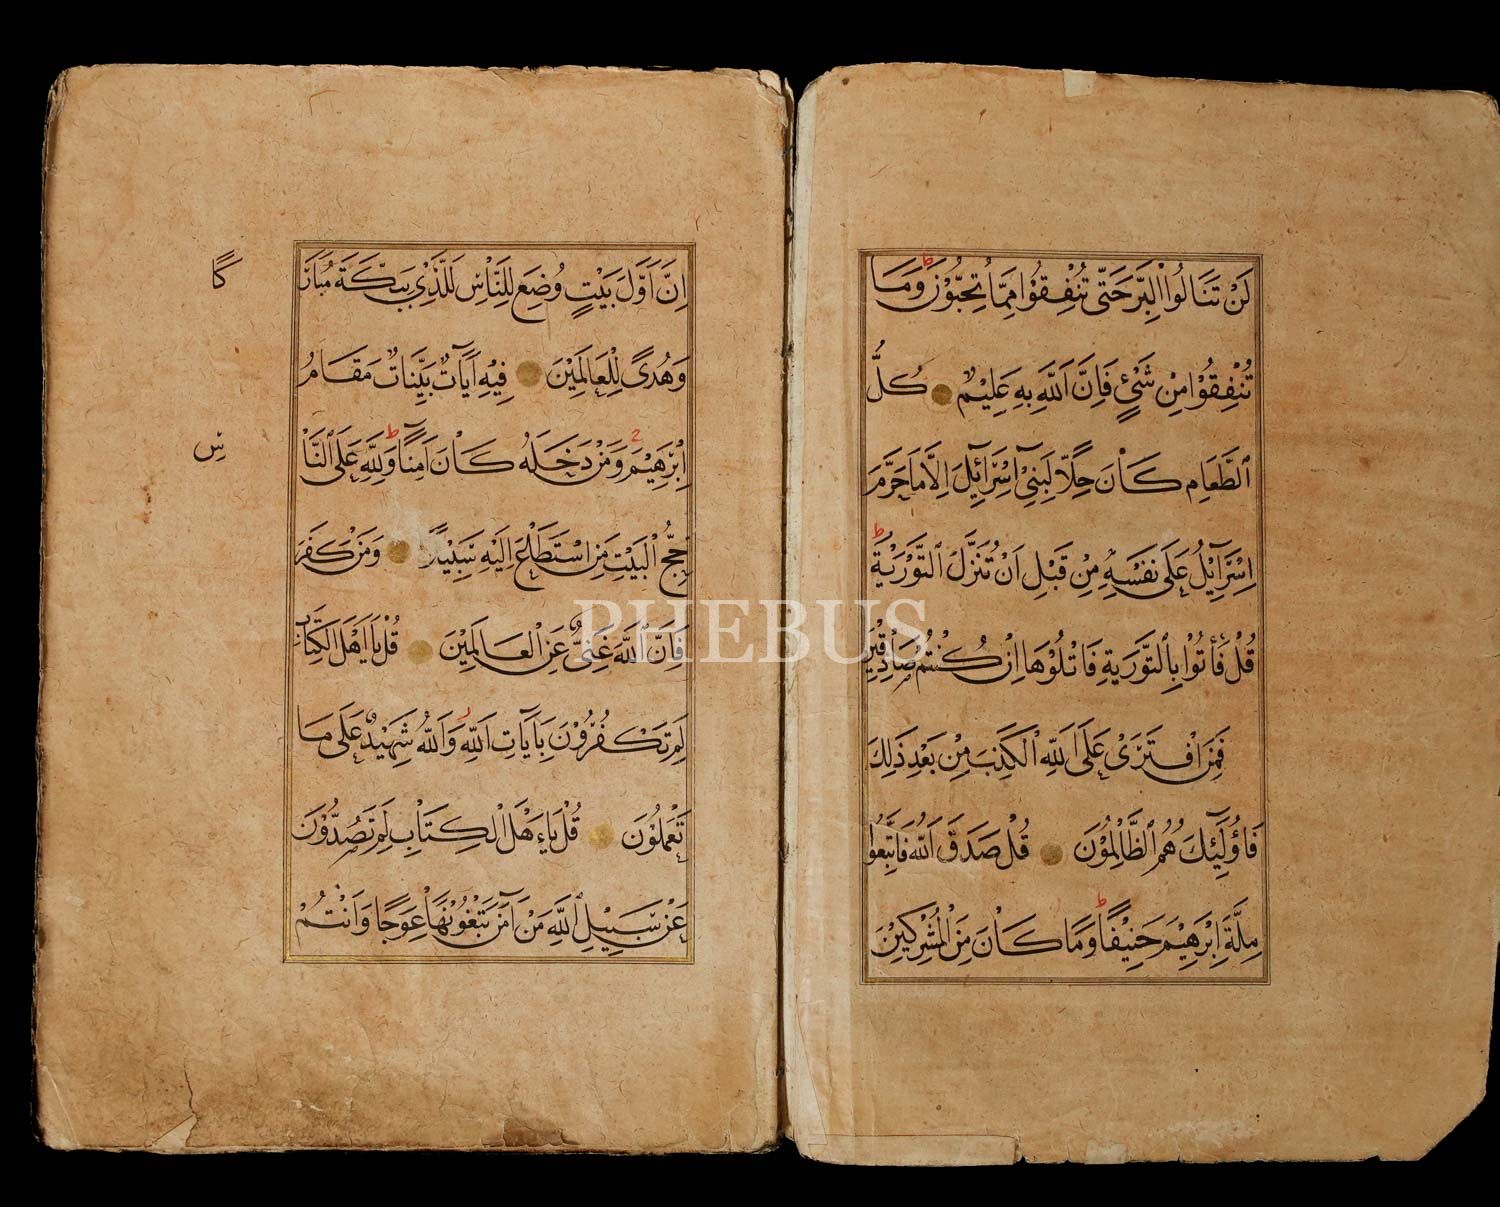 لَنْ تَنَالُوا الْبِرَّ حَتّٰى تُنْفِقُوْا مِمَّا تُحِبُّوْنَ ط وَمَا
تُنْفِقُوْا مِنْ شَیْءٍ فَاِنَّ اللّٰهَ بِهِ عَلِيْمٌ كُلُّ
الطَّعَامِ كَانَ حِلًّا لِبَنِیْ اِسْرَآئِيْلَ اِلَّا مَا حَرَّمَ
اِسْرَآئِيْلُ عَلٰى نَفْسِهِ مِنْ قَبْلِ اَنْ تُنَزَّلَ التَّوْرٰيةُ ط
قُلْ فَأْتُوْا بِالتَّوْرٰيةِ فَاتْلُوْهَا اِنْ كُنْتُمْ صَادِقِيْنَ
فَمَنِ افْتَرٰى عَلَى اللّٰهِ الْكَذِبَ مِنْ بَعْدِ ذَلِكَ
فَاُولَٓئِكَ هُمُ الظَّالِمُوْنَ قُلْ صَدَقَ اللّٰهُ فَاتَّبِعُوا
مِلَّةَ اِبْرٰهِيْمَ حَنِيْفًا ط وَمَا كَانَ مِنَ الْمُشْرِكِيْنَ
اِنَّ اَوَّلَ بَيْتٍ وُضِعَ لِلنَّاسِ لَلَّذِیْ بِبَكَّةَ مُبَارَ
كًا
وَهُدًی لِلْعَالَمِيْنَ فِيْهِ اٰيَاتٌ بَيِّنَاتٌ مَقَامُ
اِبْرٰهِيْمَ ج وَمَنْ دَخَلَهُ كَانَ اٰمِنًا ط وَلِلّٰهِ عَلَى النَّا
سِ
حِجُّ الْبَيْتِ مَنِ اسْتَطَاعَ اِلَيْهِ سَبِيْلًا وَمَنْ كَفَرَ
فَاِنَّ اللّٰهَ غَنِیٌّ عَنِ الْعَالَمِيْنَ قُلْ يَا اَهْلَ الْكِتَابِ
لِمَ تَكْفُرُوْنَ بِاٰيَاتِ اللّٰهِ وَاللّٰهُ شَهِيْدٌ عَلٰى مَا
تَعْمَلُوْنَ قُلْ يَاءَهْلَ الْكِتَابِ لِمَ تَصُدُّوْنَ
عَنْ سَبِيْلِ اللّٰهِ مَنْ اٰمَنَ تَبْغُوْنَهَا عِوَجًا وَاَنْتُمْ
PHEBUS